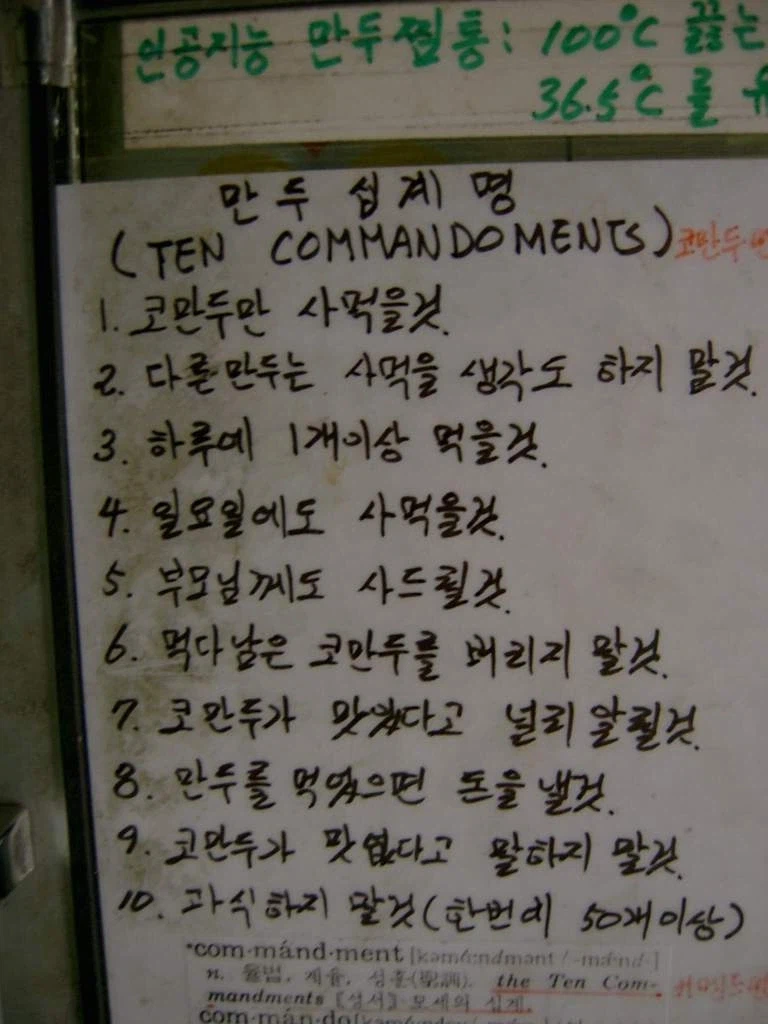 인공지능 만두찜통: 100°C 끓는
36.5°C를 유
만두 십계명
(TEN COMMANDOMENTS) 코만두
1. 코만두만 사먹을것.
2. 다른만두는 사먹을 생각도 하지 말것.
3. 하루에 1개이상 먹을것.
4. 일요일에도 사먹을것.
5. 부모님께도 사드릴것.
6. 먹다남은 코만두를 버리지 말것.
7. 코만두가 맛있다고 널리 알릴것.
8. 만두를 먹었으면 돈을 낼것.
9. 코만두가 맛없다고 말하지 말것.
10. 과식하지 말것(한번에 50개이상)
com·mánd·ment
n. 율법, 계율, 성훈(聖訓). the Ten Com-
mandments 〖성서〗 모세의 십계.
com·mán·do